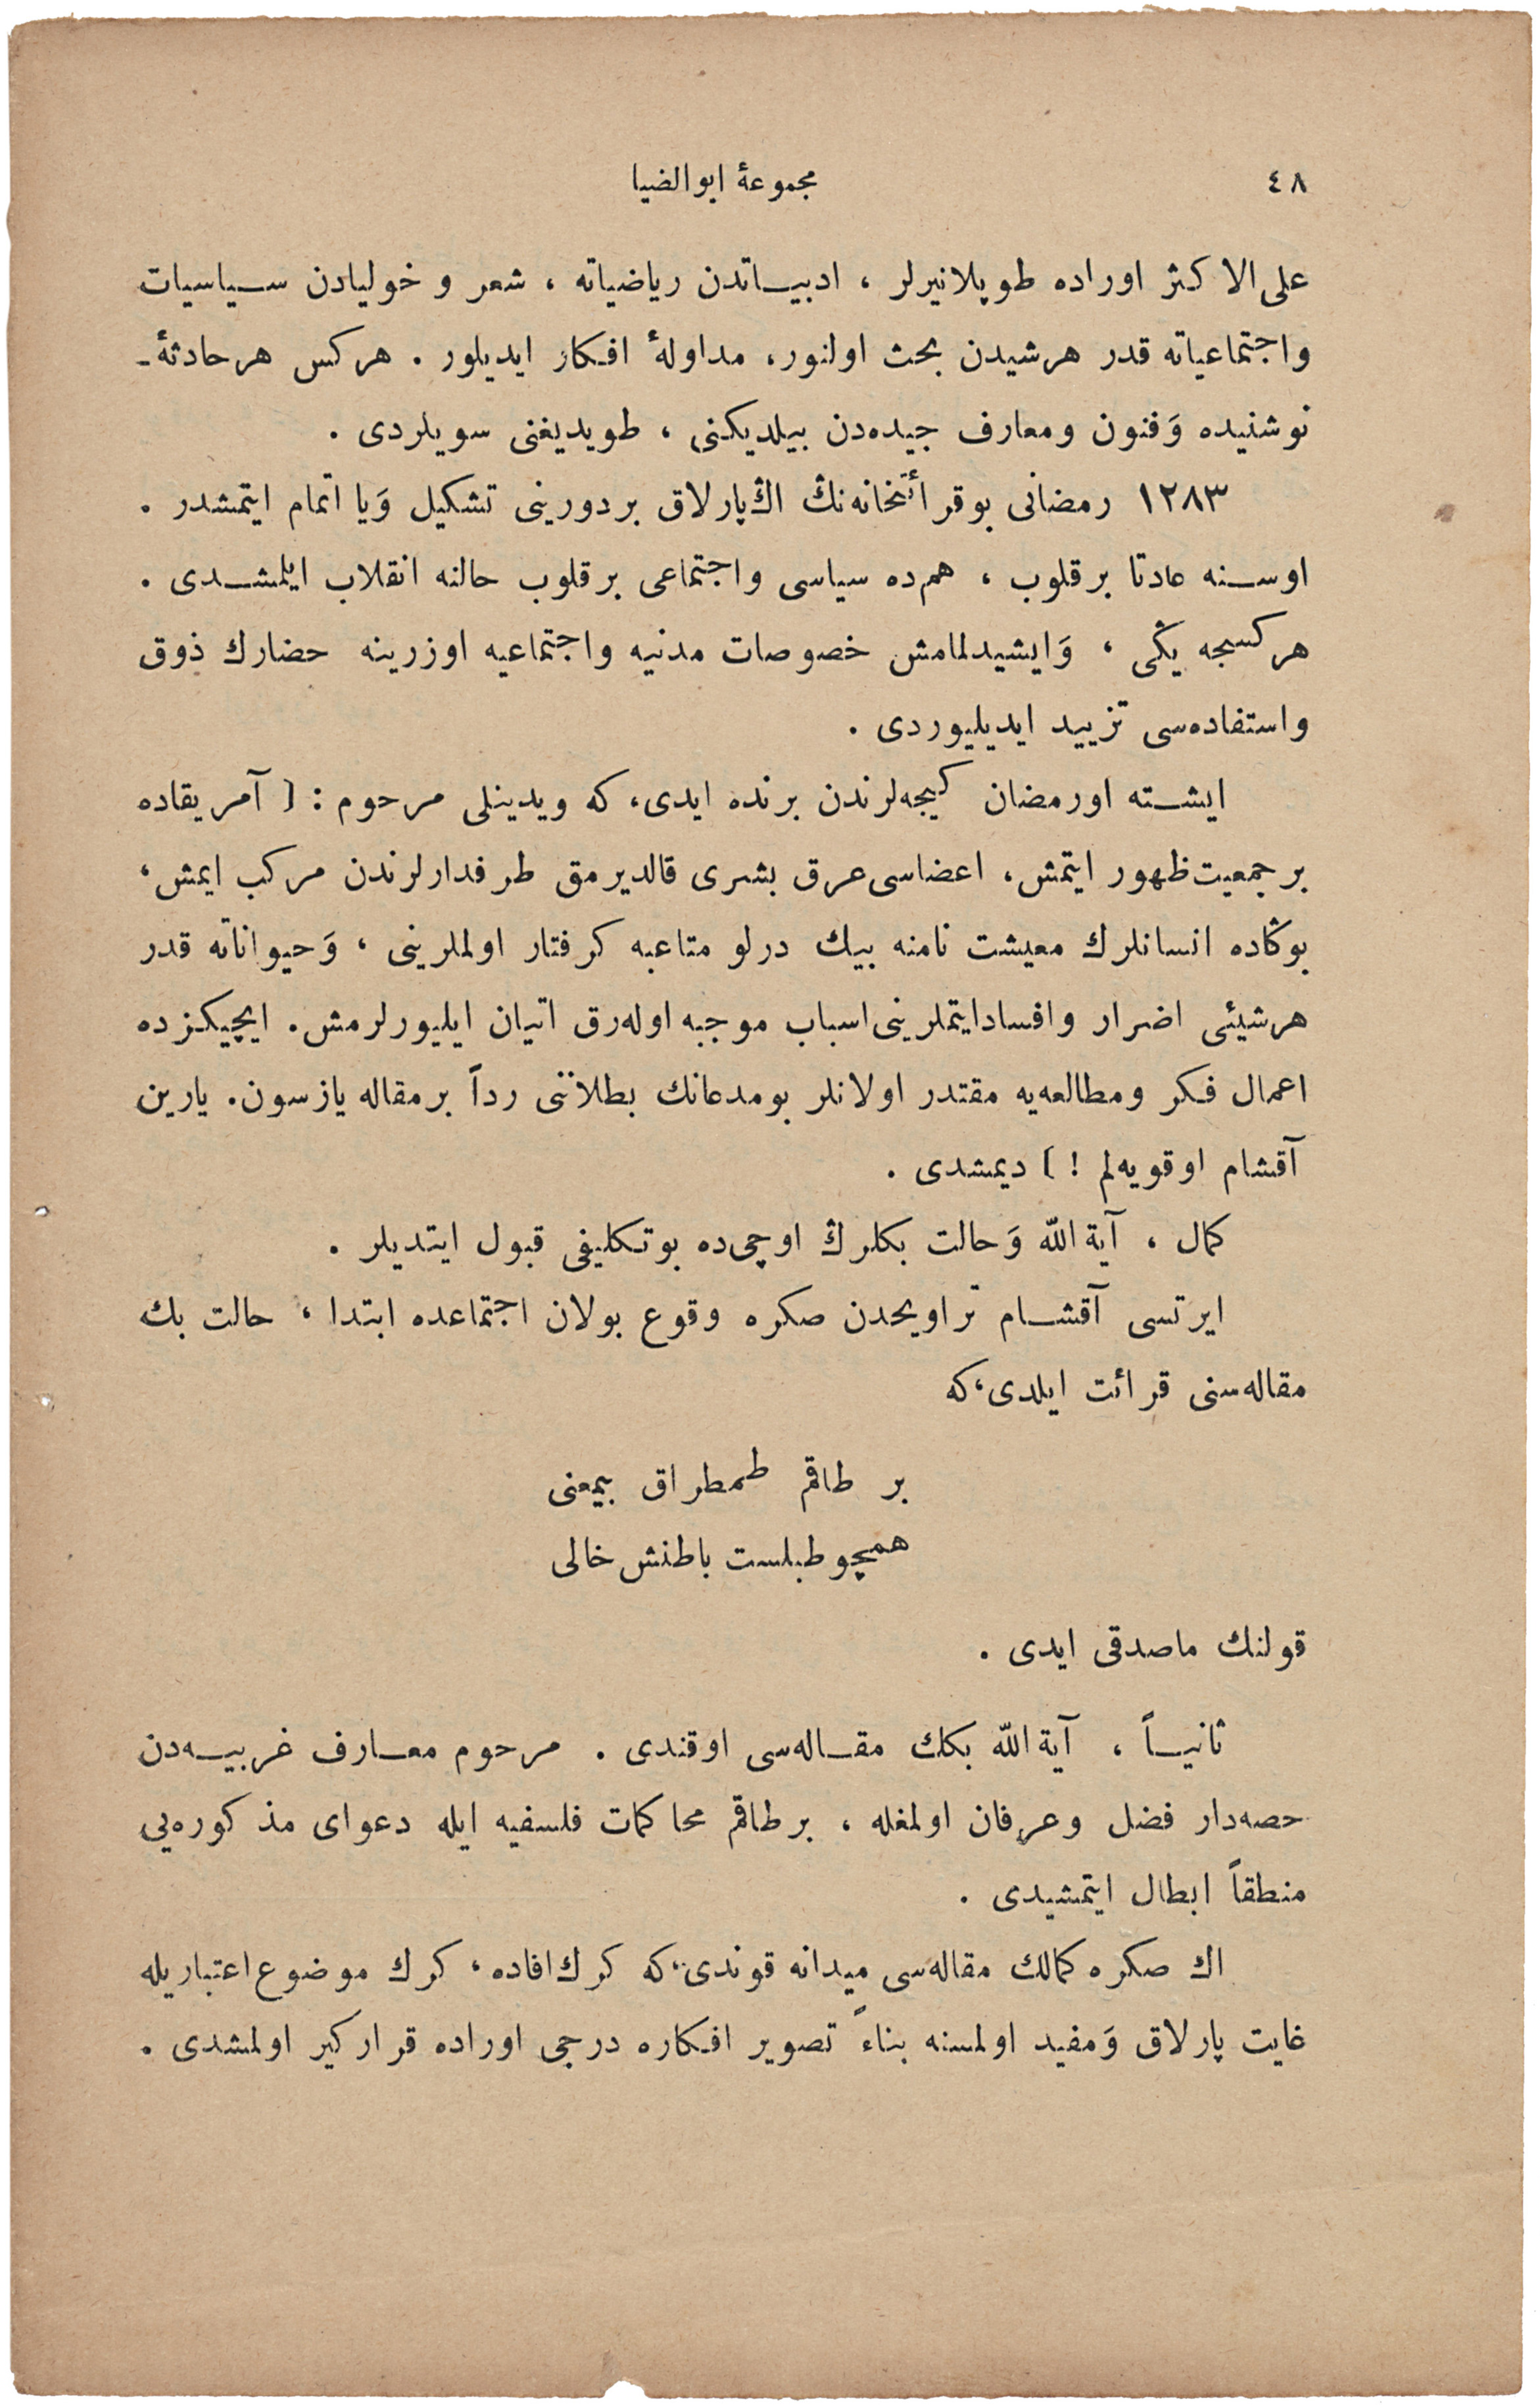 ٤٨
مجموعهٔ ابوالضیا
علی الاکثر اوراده طوپلانیرلر ، ادبیاتدن ریاضیاته ، شعر و خولیادن سیاسیات
واجتماعیاته قدر هرشیدن بحث اولنور، مداولهٔ افکار ایدیلور . هرکس هرحادثهٔ-
نوشنیده وَفنون ومعارف جیده‌دن بیلدیکنی ، طویدیغنی سویلردی .
١٢٨٣ رمضانی بوقرائتخانه‌نڭ اڭ پارلاق بردورینی تشکیل وَیا اتمام ایتمشدر .
اوسنه عادتا برقلوب ، هم‌ده سیاسی واجتماعی برقلوب حالنه انقلاب ایلمشدی .
هرکسجه یڭی ، وَایشیدلمامش خصوصات مدنیه واجتماعیه اوزرینه حضارك ذوق
واستفاده‌سی تزیید ایدیلیوردی .
ایشته اورمضان کیجه‌لرندن برنده ایدی، که ویدینلی مرحوم : [ آمریقاده
برجمعیت ظهور ایتمش، اعضاسی عرق بشری قالدیرمق طرفدارلرندن مرکب ایمش،
بوڭاده انسانلرك معیشت نامنه بیك درلو متاعبه کرفتار اولملرینی ، وَحیواناته قدر
هرشیئی اضرار وافسادایتملرینی اسباب موجبه اوله‌رق اتیان ایلیورلرمش. ایچیکزده
اعمال فکر ومطالعه‌یه مقتدر اولانلر بومدعانك بطلاننی رداً برمقاله یازسون. یارین
آقشام اوقویه‌لم ! ] دیمشدی .
کمال ، آیةالله وَحالت بکلرڭ اوچی‌ده بوتکلیفی قبول ایتدیلر .
ایرتسی آقشام تراویحدن صکره وقوع بولان اجتماعده ابتدا ، حالت بك
مقاله‌سنی قرائت ایلدی، که
بر طاقم طمطراق بیمعنی
همچو طبلست باطنش خالی
قولنك ماصدقی ایدی .
ثانیاً ، آیةالله بکك مقاله‌سی اوقندی . مرحوم معارف غربیه‌دن
حصه‌دار فضل وعرفان اولمغله ، برطاقم محاکمات فلسفیه ایله دعوای مذکوره‌یی
منطقاً ابطال ایتمشیدی .
اڭ صکره کمالك مقاله‌سی میدانه قوندی، که کرك افاده، کرك موضوع اعتباریله
غایت پارلاق وَمفید اولمسنه بناءً تصویر افکاره درجی اوراده قرارکیر اولمشدی .